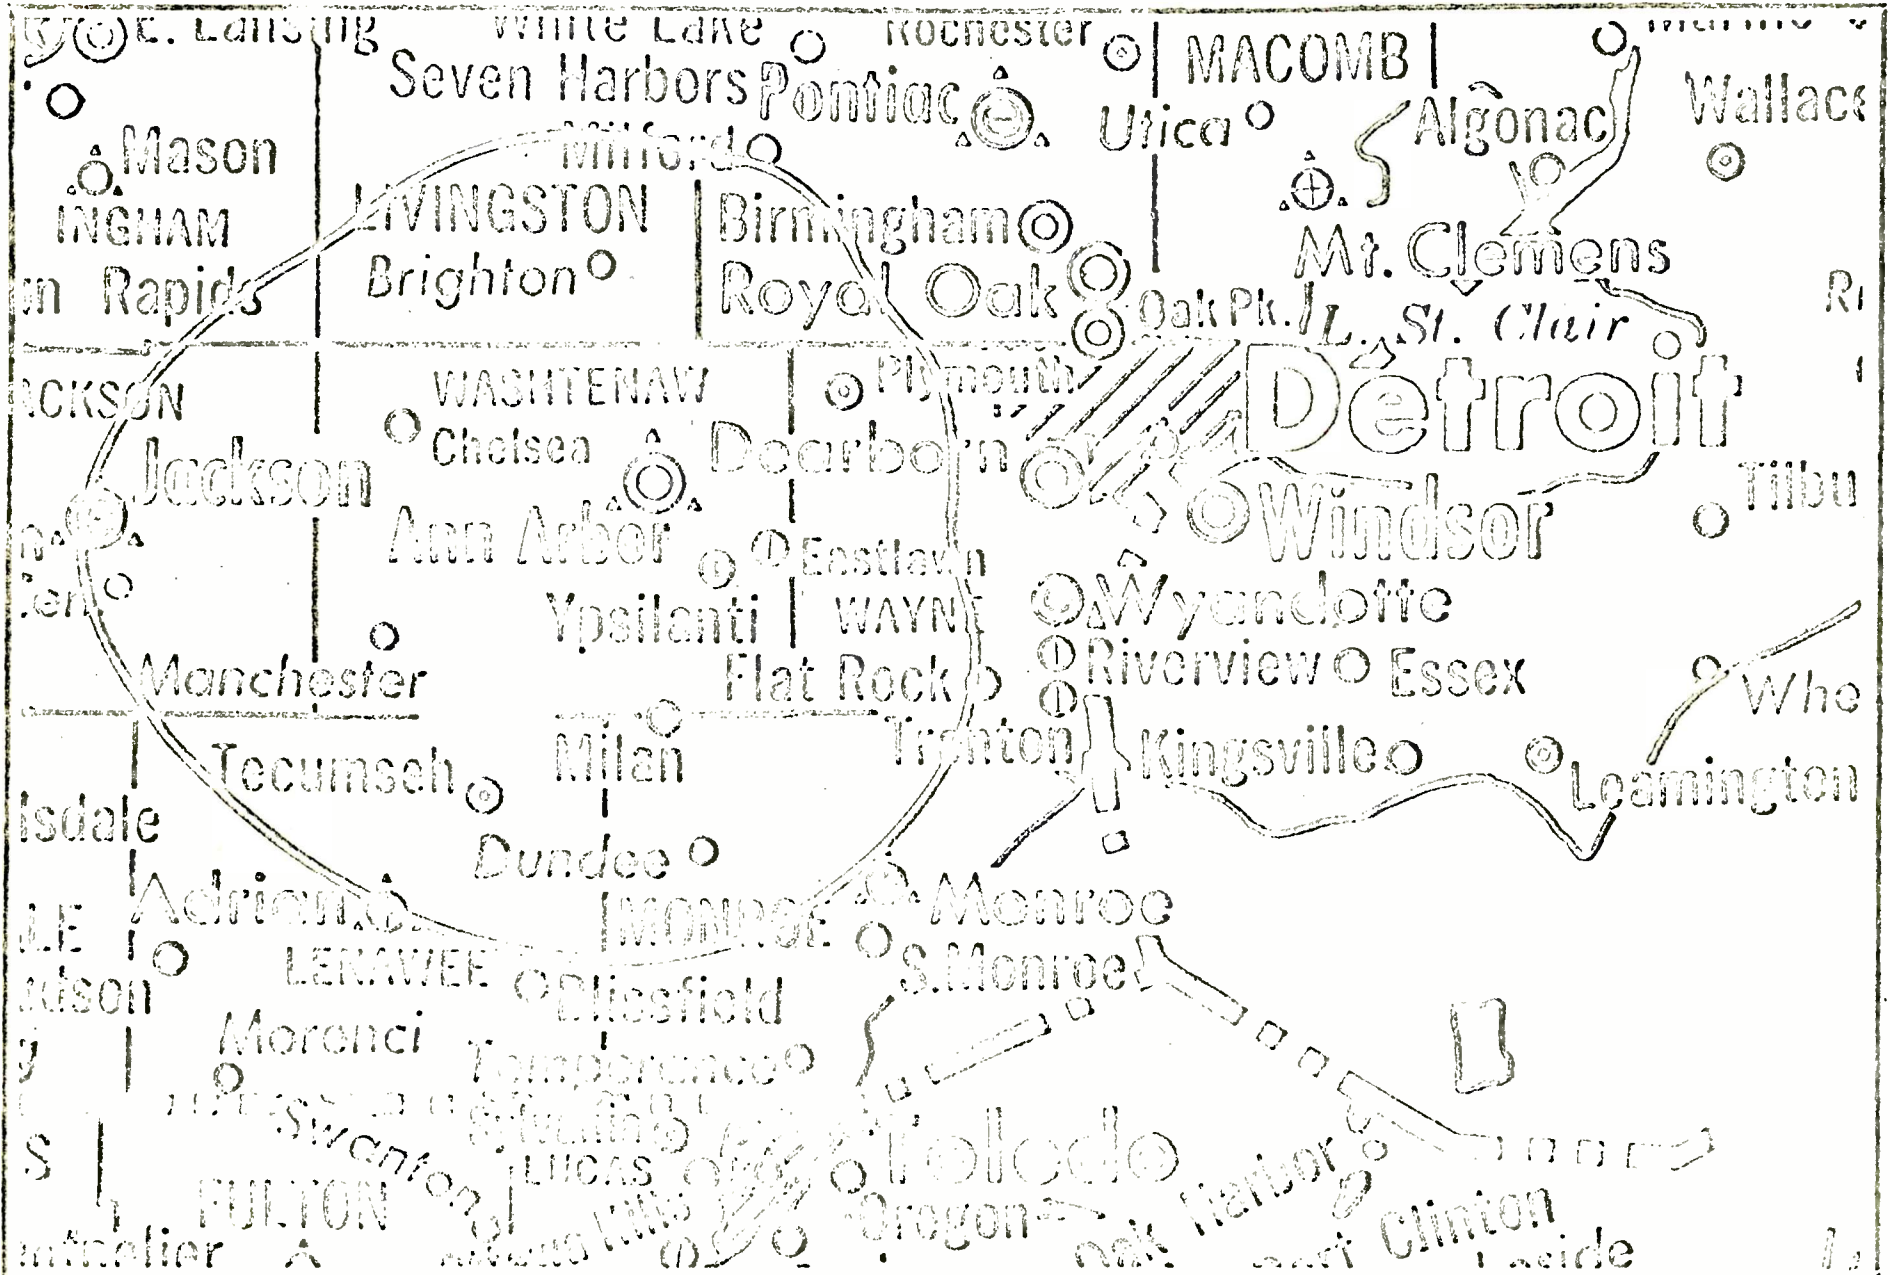 E. Lansing
White Lake
Rochester
MACOMB
Seven Harbors
Pontiac
Utica
Algonac
Wallace
Mason
Milford
INGHAM
LIVINGSTON
Birmingham
Mt. Clemens
Rapids
Brighton
Royal Oak
Oak Pk.
L. St. Clair
WASHTENAW
Plymouth
Detroit
JACKSON
Jackson
Chelsea
Dearborn
Windsor
Tilbu
Ann Arbor
Eastlawn
Ypsilanti
WAYNE
Wyandotte
Manchester
Flat Rock
Riverview
Essex
Whe
Tecumseh
Milan
Trenton
Kingsville
Leamington
lsdale
Dundee
Adrian
MONROE
Monroe
LENAWEE
S. Monroe
udson
Blissfield
Morenci
Temperance
Swanton
Sylvania
LUCAS
Toledo
FULTON
Oregon
Oak Harbor
Clinton